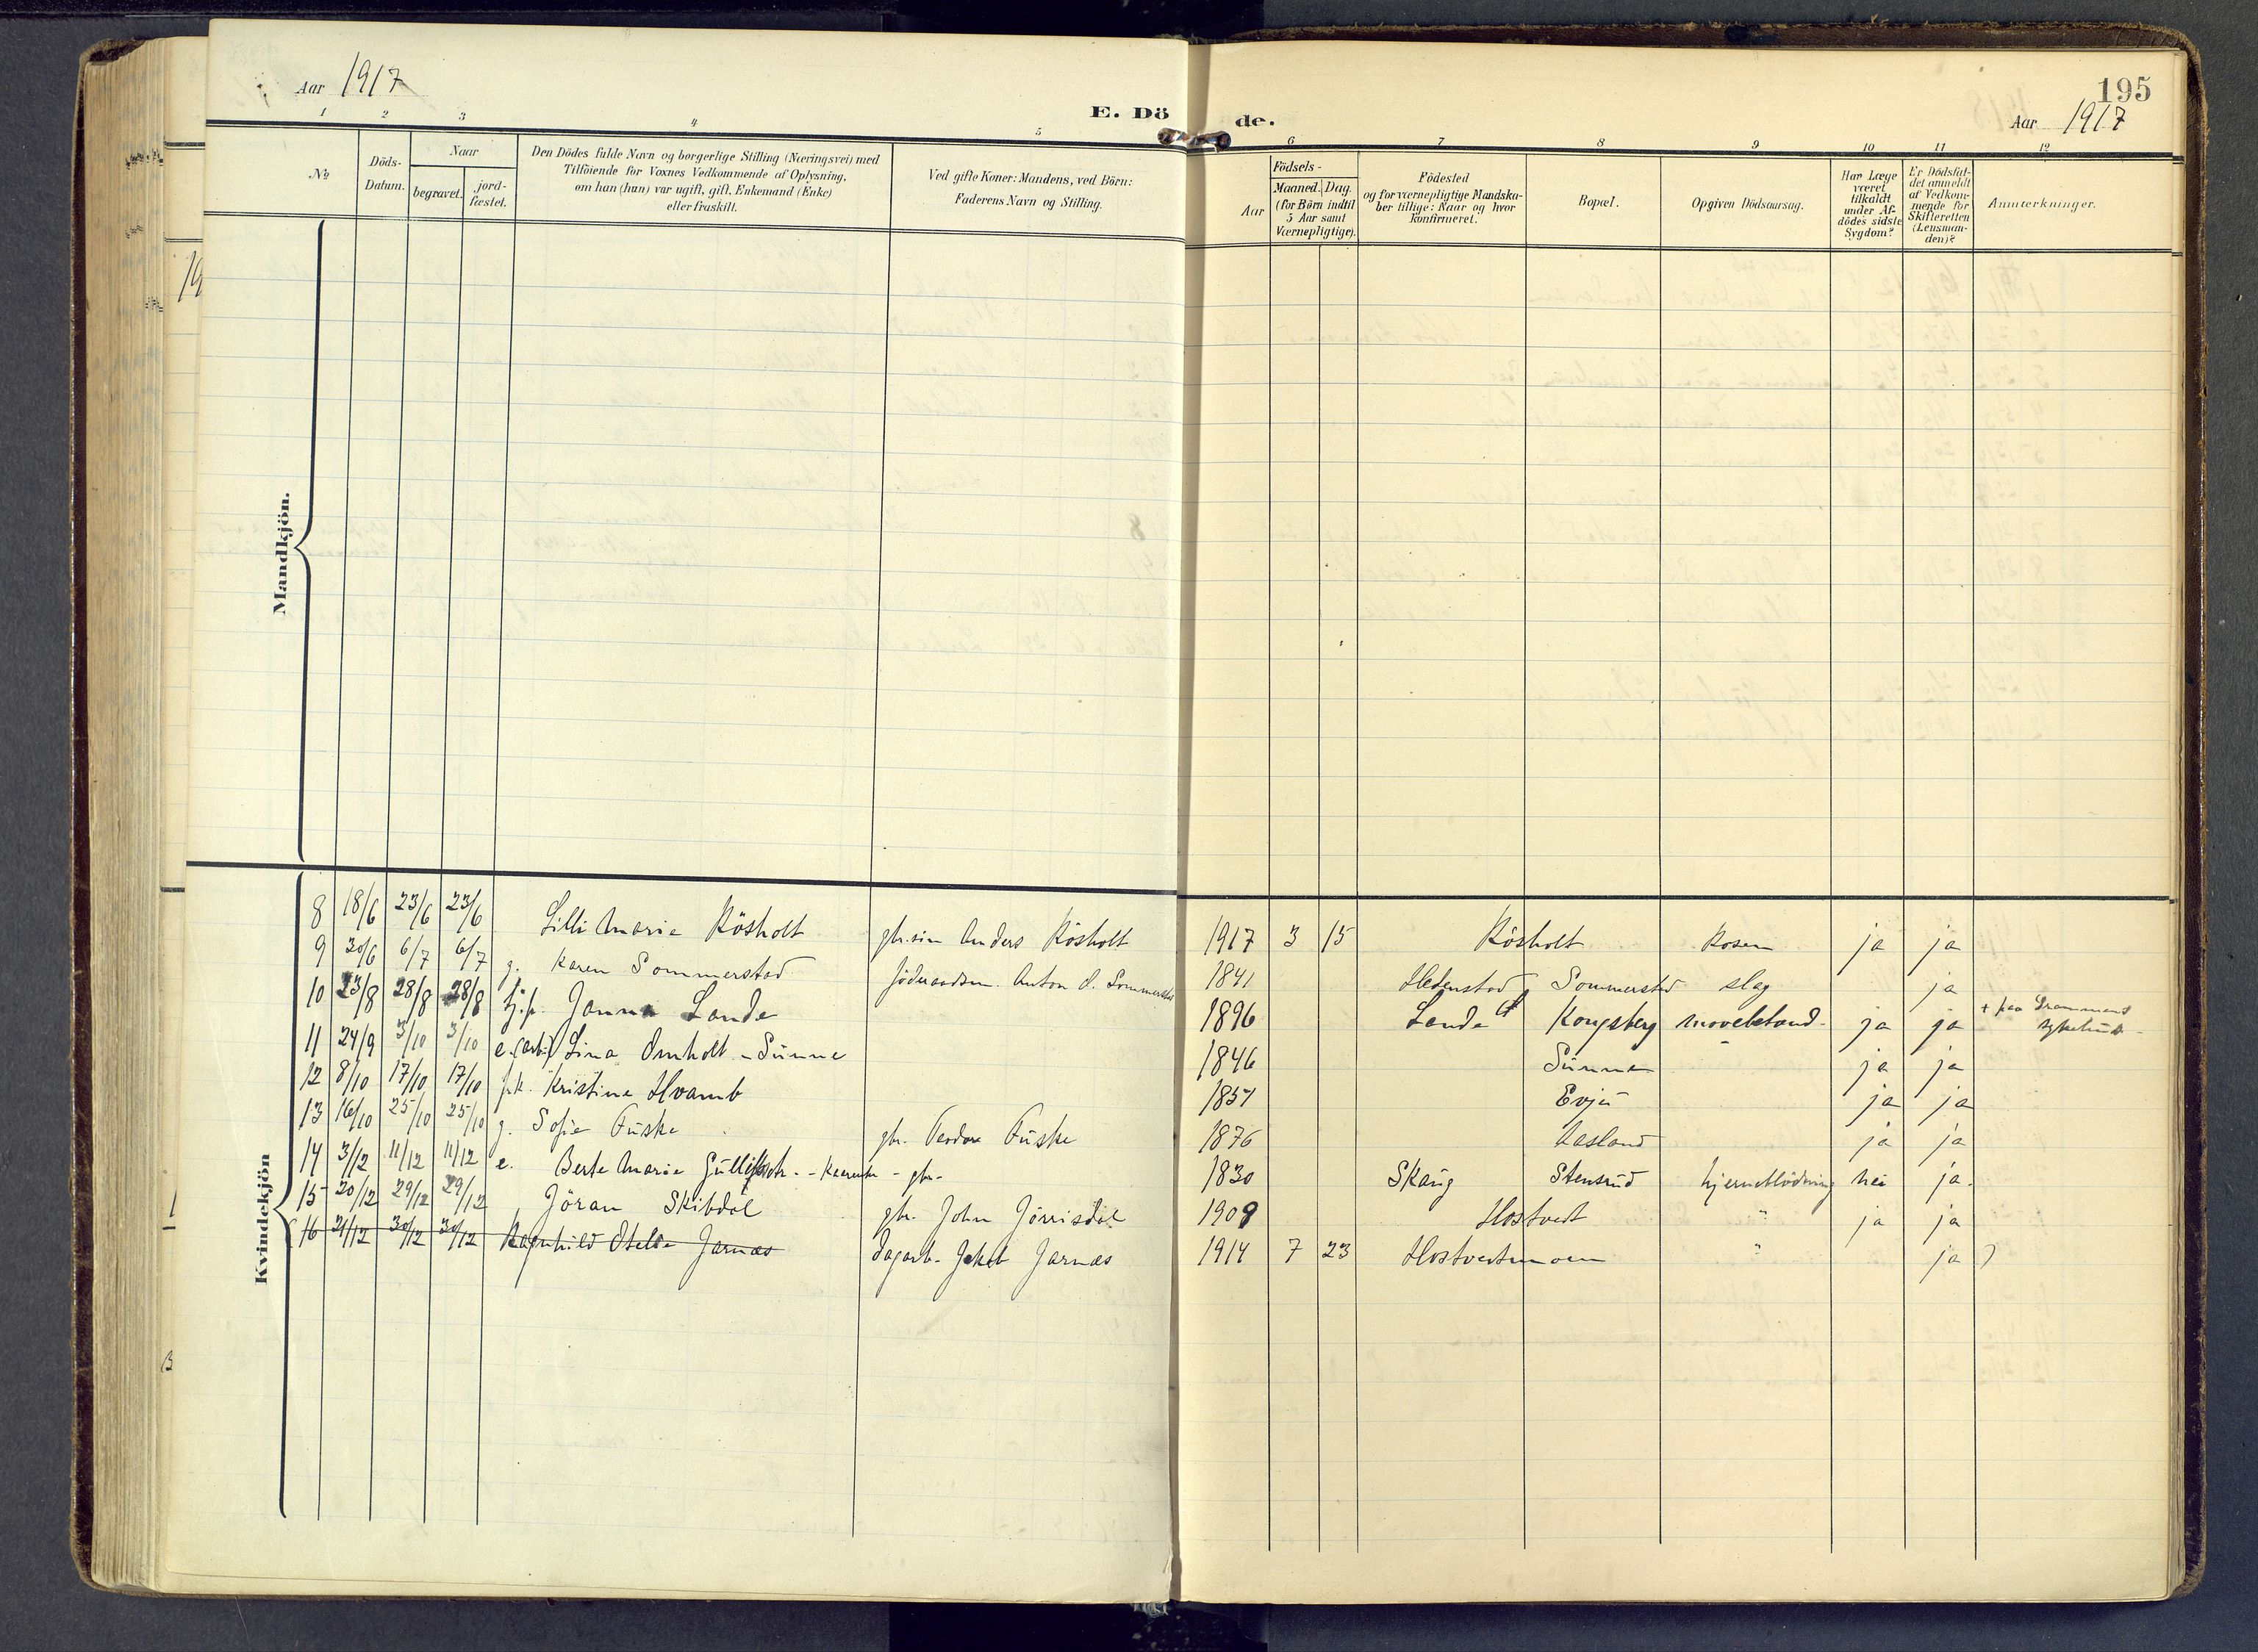 Aar 1917
E. Dö de.
195
Aar 1917
1 2 3 4 5 6 7 8 9 10 11 12
№
Döds-Datum.
Naar
begravet.
jord-fæstet.
Den Dödes fulde Navn og borgerlige Stilling (Næringsvei) med
Tilföiende for Voxnes Vedkommende af Oplysning,
om han (hun) var ugift, gift, Enkemand (Enke)
eller fraskilt.
Ved gifte Koner: Mandens, ved Börn:
Faderens Navn og Stilling.
Födsels-
Aar
Maaned. Dag.
(for Börn indtil
5 Aar samt
Værnepligtige).
Födested
og for værnepligtige Mandska-
ber tillige: Naar og hvor
Konfirmeret.
Bopæl.
Opgiven Dödsaarsag.
Har Læge
været
tilkaldt
under Af-
dödes sidste
Sygdom?
Er Dödsfal-
det anmeldt
af Vedkom-
mende for
Skifteretten
(Lensman-
den)?
Anmærkninger.
Mandkjön.
Kvindekjön
8 18/6 23/6 23/6 Lilli Marie Kösholt gbr.sön Anders Kösholt 1917 3 15 Kösholt Rosen ja ja
9 30/6 6/7 6/7 g. Karen Sommerstad Anton O. Sommerstad 1841 Hedenstad Sommerstad slag ja
10 23/8 28/8 28/8 tj.p. Janna Lande 1896 Lande Kongsberg ja ja + paa Drammens sykehus
11 24/9 3/10 3/10 e. Lina Omholt - Sünne 1846 Sünne ja ja
12 8/10 17/10 17/10 Kristine Hvamb 1857 Evju ja ja
13 16/10 25/10 25/10 g. Sofie Fuske gbr. Teodor Fuske 1876 Aasland ja ja
14 3/12 11/12 11/12 e. Berte Marie - gbr. 1830 Skaug Stensrud hjerneblödning nei ja.
15 20/12 29/12 29/12 Jöran Skibdal gbr. John Jörrisdal 1908 Hostvedt " ja ja
16 21/12 30/12 30/12 Ragnhild Otelie Jarnæs dagarb. Jakob Jarnæs 1914 7 23 Hostvedtmoen " ja )